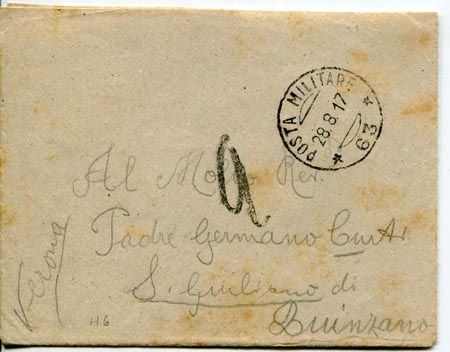 POSTA MILITARE * 29 *
28.8.17
Al Molto Rev.
Padre Germano Curti
S. Giuliano di
Quinzano
Verona
H6